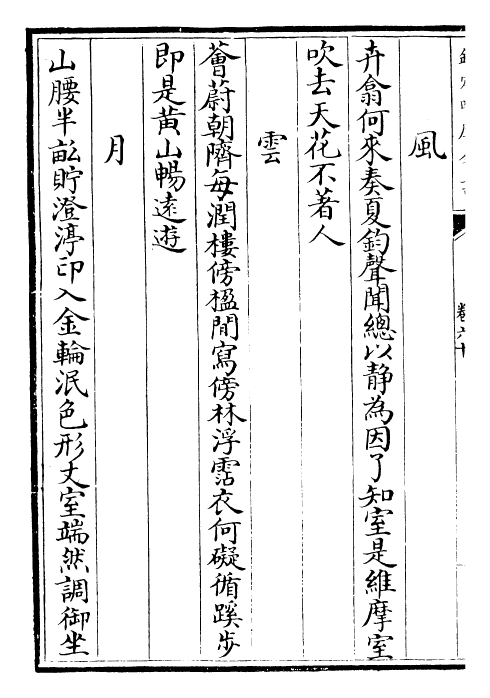 風
卉翕何來奏夏鈞聲聞總以静為因了知室是維摩室
吹去天花不著人
雲
薈蔚朝隮每潤樓傍楹閒寫傍林浮霑衣何礙循蹊步
即是黄山暢遠遊
月
山腰半畝貯澄渟印入金輪泯色形丈室端然調御坐